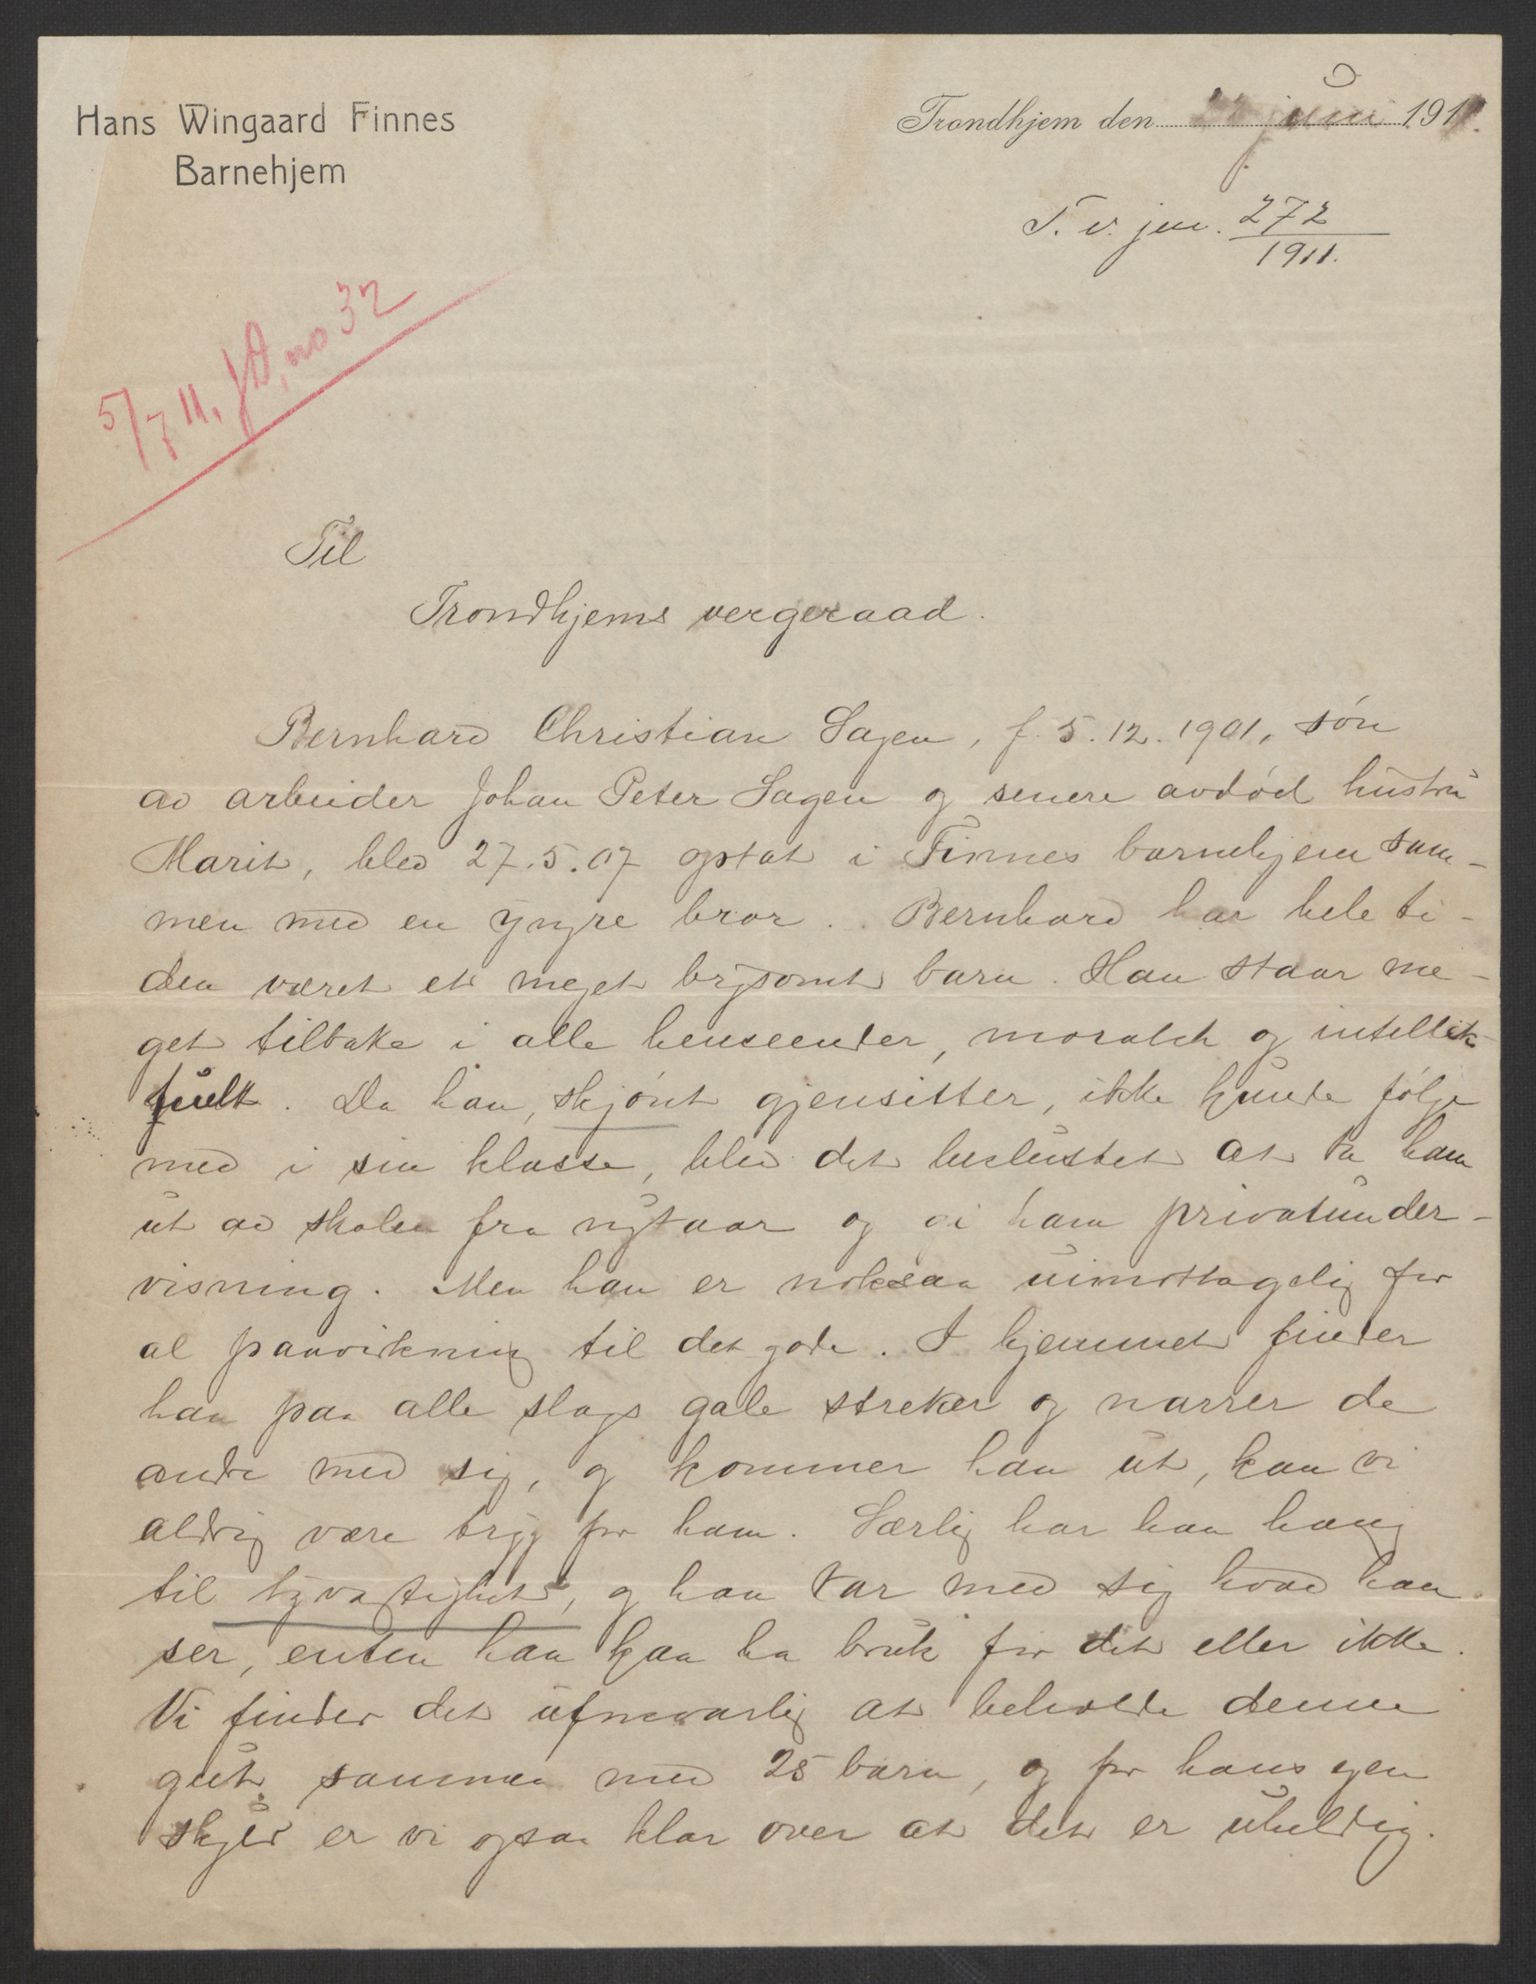 Hans Wingaard Finnes
Barnehjem
Trondhjem den juni 1911.
T. v. jnr. 272
1911.
5/7 11, no 32
Til
Trondhjems vergeraad.
Bernhard Christian Sagen, f. 5.12.1901, søn
av arbeider Johan Peter Sagen og senere avdød hustru
Marit, blev 27.5.07 optat i Finnes barnehjem sam-
men med en yngre bror. Bernhard har hele ti-
den været et meget brysomt barn. Han staar me-
get tilbake i alle henseender, moralsk og intellek-
tuelt. Da han, skjønt gjensitter, ikke kunde følge
med i sin klasse, blev det besluttet at ta ham
ut av skolen fra nytaar og gi ham privatunder-
visning. Men han er noksaa uimottagelig for
al paavirkning til det gode. I hjemmet finder
han paa alle slags gale streker og narrer de
andre med sig, og kommer han ut, kan vi
aldrig være tryg for ham. Særlig har han hang
til tyvagtighet, og han tar med sig hvad han
ser, enten han kan ha bruk for det eller ikke.
Vi finder det uforsvarlig at beholde denne
gut sammen med 25 barn, og for hans egen
skyld er vi ogsaa klar over at det er uheldig.